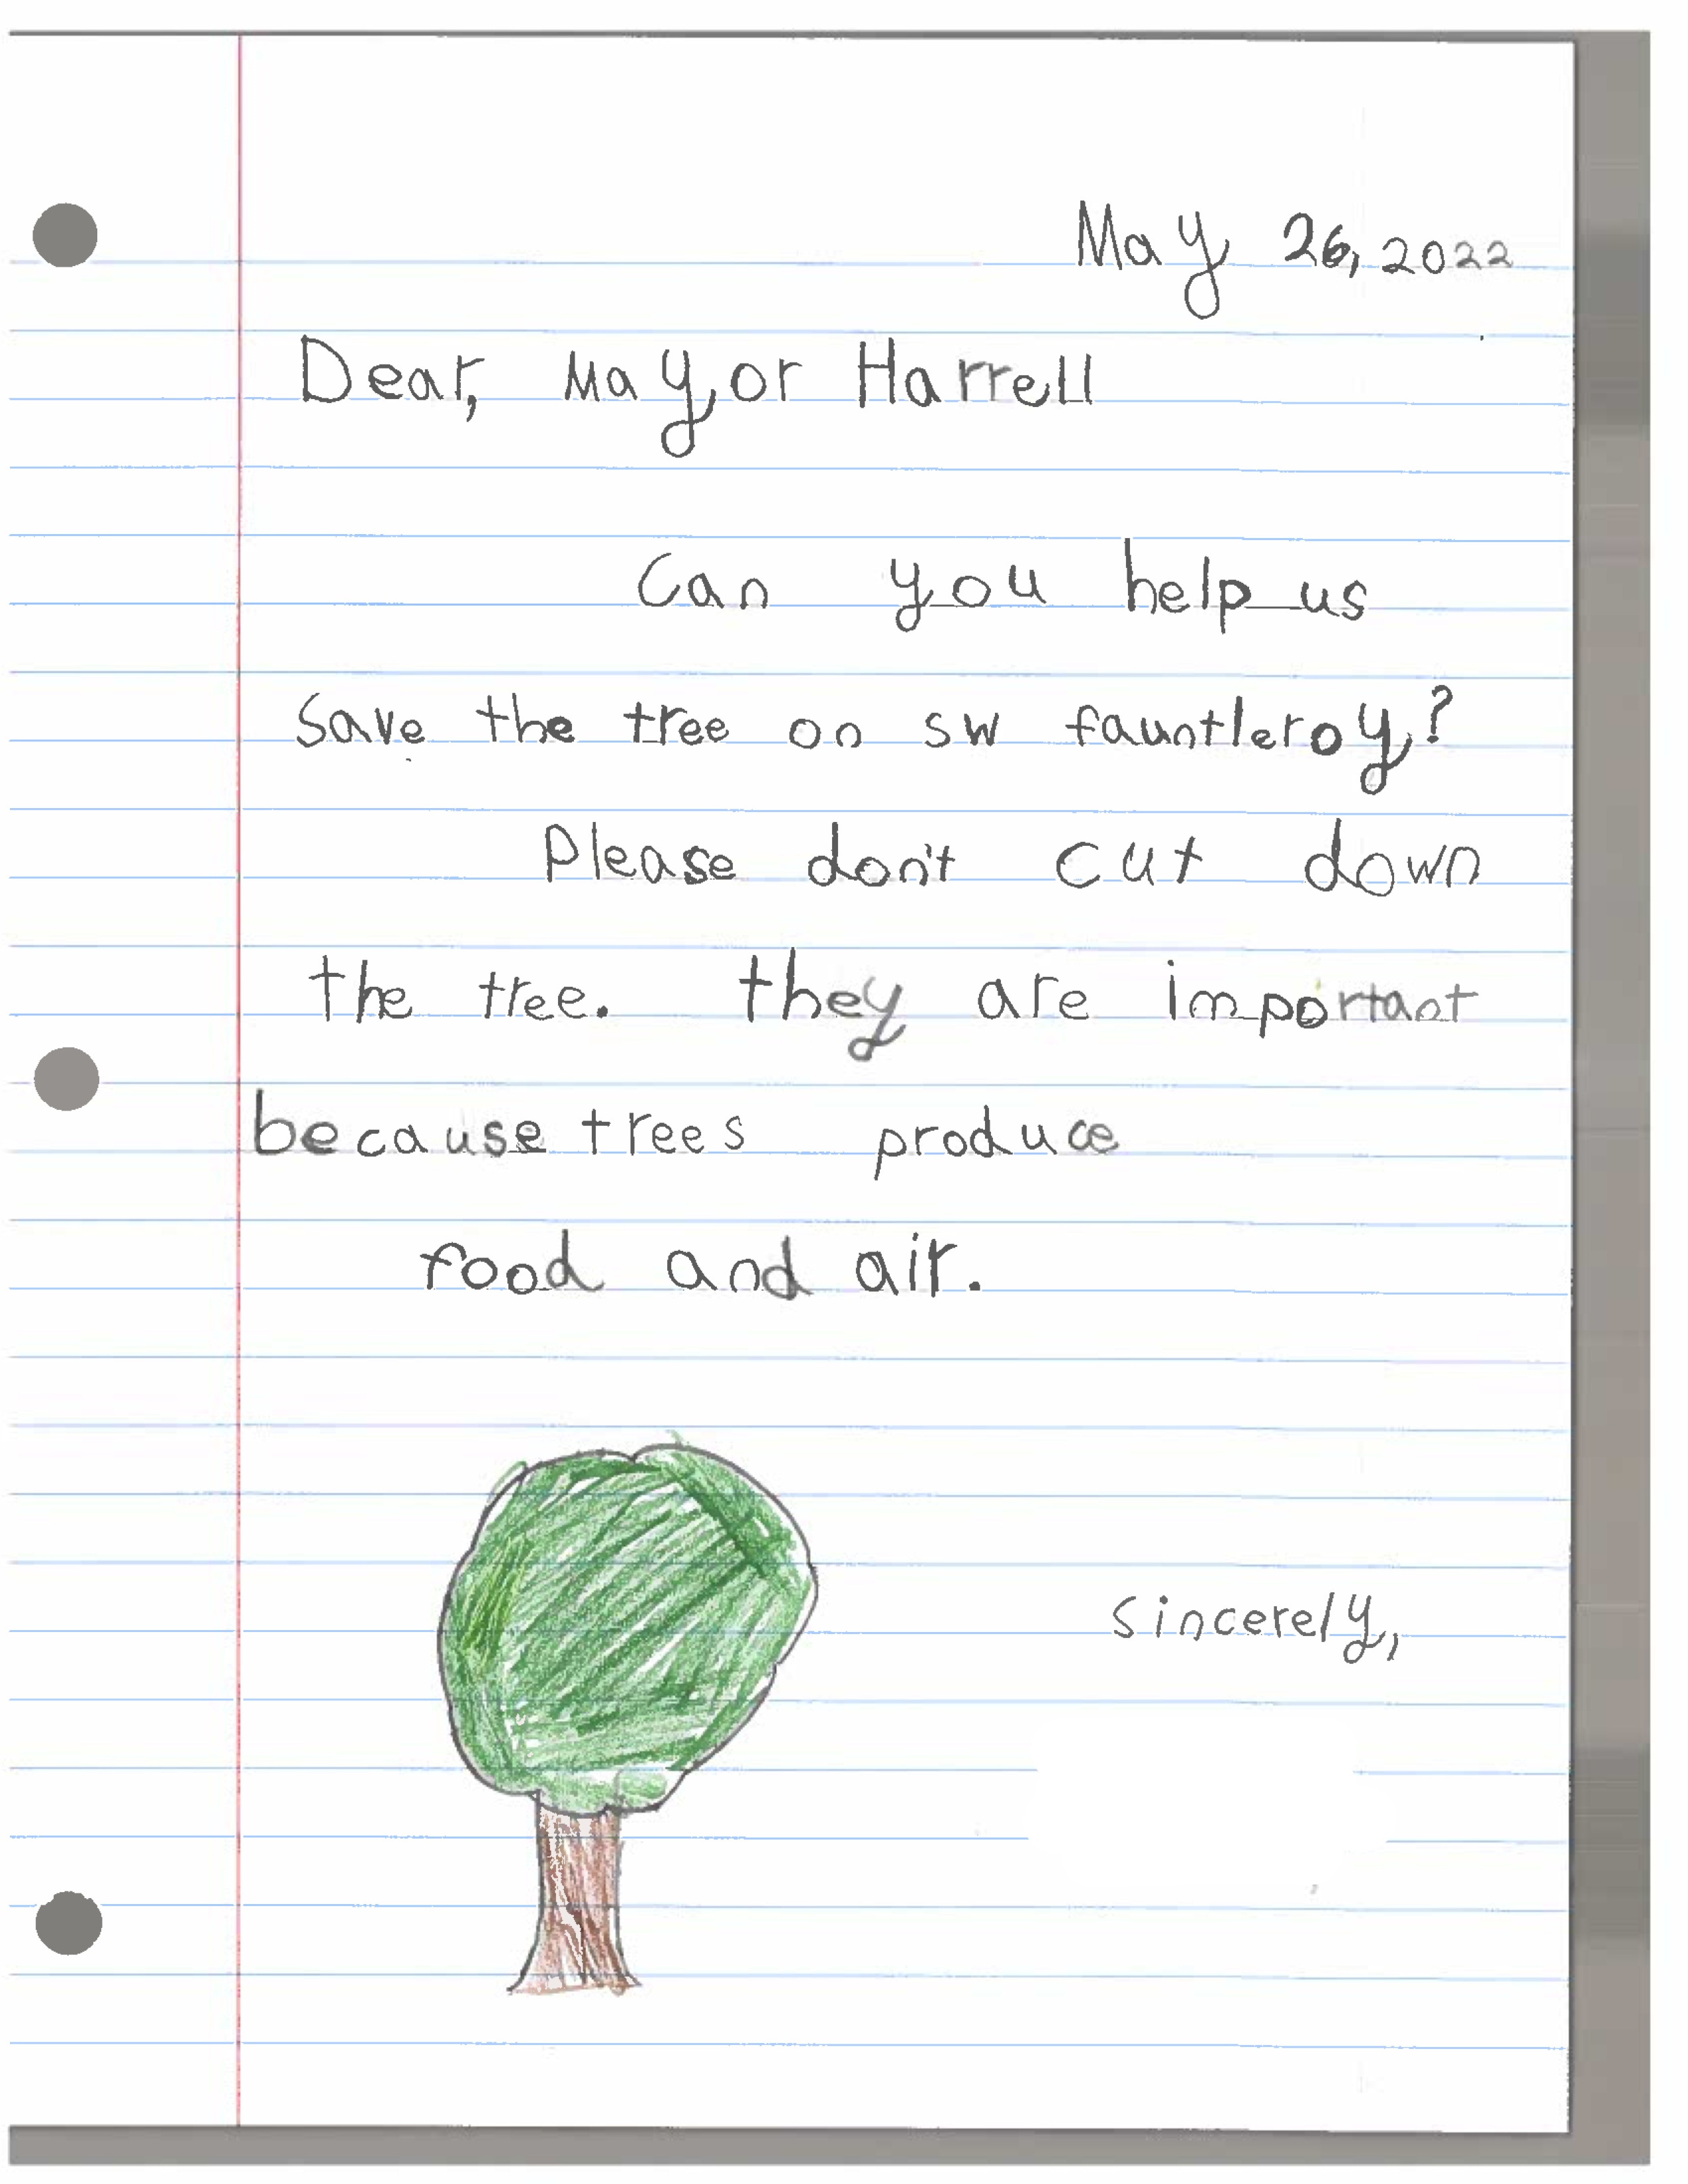 May 26, 2022
Dear, Mayor Harrell
Can you help us
Save the tree on sw fauntleroy?
Please don't cut down
the tree. they are important
because trees produce
food and air.
Sincerely,